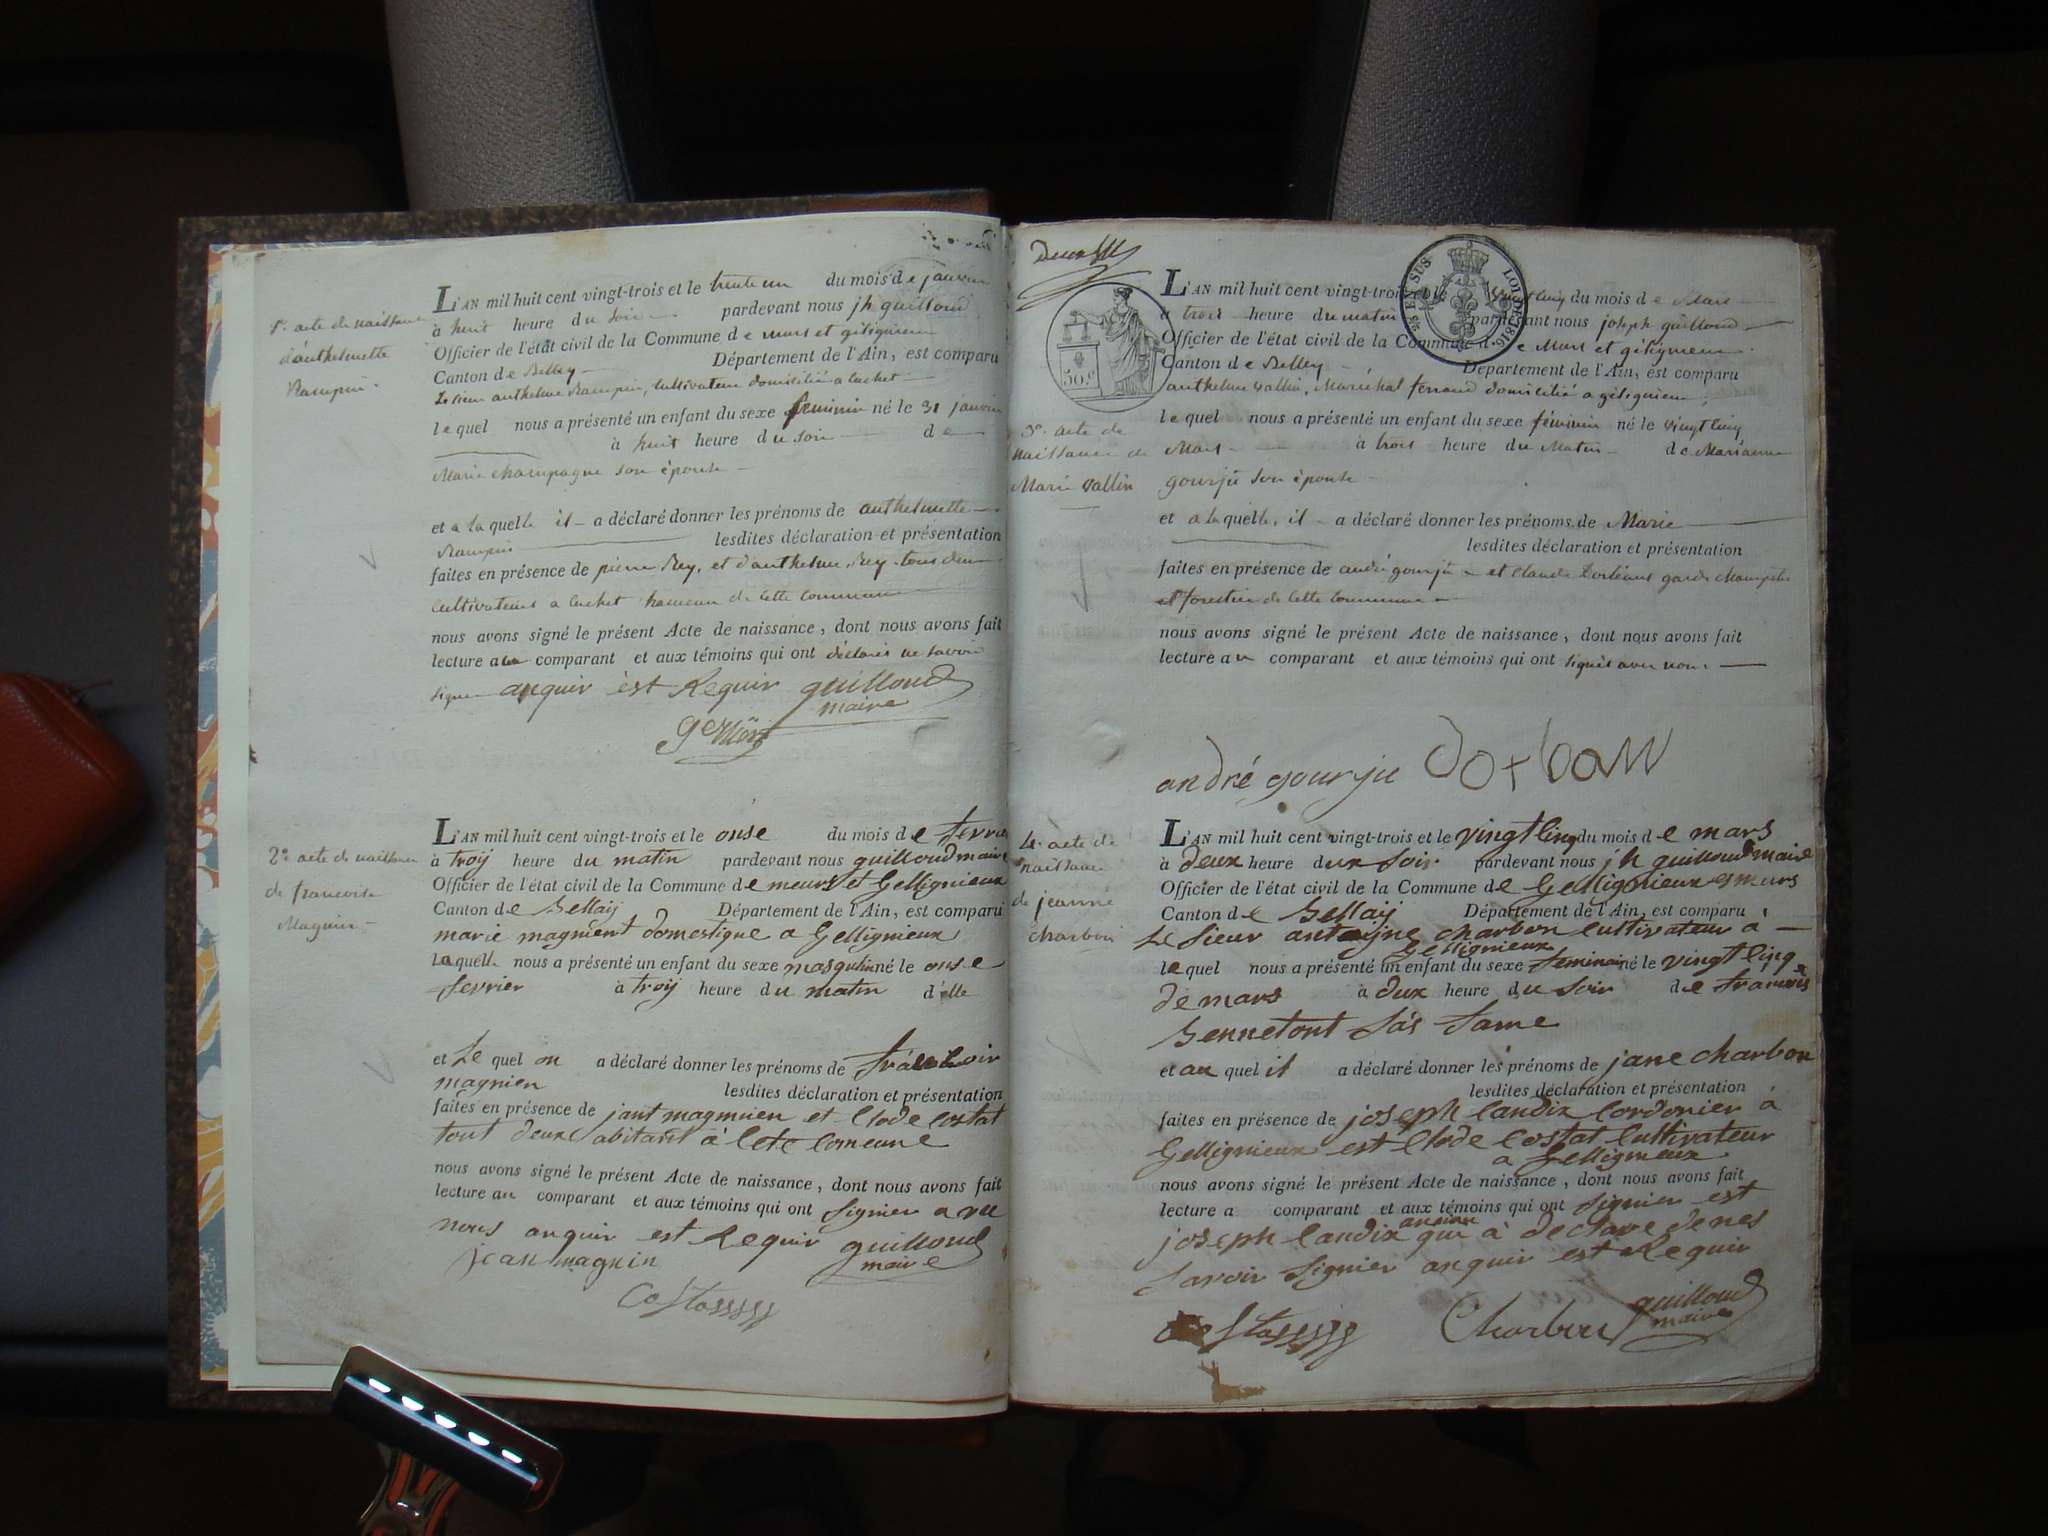 1er. acte de naissance
d'anthelmette
Rampin.
L'AN mil huit cent vingt-trois et le trente un du mois de janvier
à huit heure du soir pardevant nous jh guilloud
Officier de l'état civil de la Commune de murs et gélignieux
Canton de Belley Département de l'Ain, est comparu
Le sieur anthelme Rampin, cultivateur domicilié a luchet
lequel nous a présenté un enfant du sexe feminin né le 31 janvier
à huit heure du soir de
Marie champagne son épouse
et a la quelle il a déclaré donner les prénoms de anthelmette
Rampin lesdites déclaration et présentation
faites en présence de pierre Rey, et d'anthelme Rey tous deux
cultivateurs a luchet hameau de cette commune
nous avons signé le présent Acte de naissance, dont nous avons fait
lecture au comparant et aux témoins qui ont déclarés ne savoir
signer anquir èst Requir guilloud
maire
2e. acte de naissance
de francoise
Magnin
L'AN mil huit cent vingt-trois et le onse du mois de fevrie
à troy heure du matin pardevant nous guilloud maire
Officier de l'état civil de la Commune de meurs et Gellignieux
Canton de Bellaij Département de l'Ain, est comparu
marie magnient domestique a Gellignieux
laquelle nous a présenté un enfant du sexe masqulin né le onse
fevrier à troy heure du matin d'elle
et Le quel on a déclaré donner les prénoms de
magnien lesdites déclaration et présentation
faites en présence de jant magnien et Clode Costat
tout deux abitant à Cete Comeune
nous avons signé le présent Acte de naissance, dont nous avons fait
lecture au comparant et aux témoins qui ont signier a vec
nous anquir est Requir guilloud
maire
jean magnin
Costa
3e. acte de
naissance de
Marie vallin
30 c.
LOI DE 1816
L'AN mil huit cent vingt-trois et le vingt cinq du mois de Mars
à trois heure du matin pardevant nous joseph guilloud
Officier de l'état civil de la Commune de Murs et gélignieux
Canton de Belley Département de l'Ain, est comparu
anthelme vallin, Maréchal ferrand domicilié a gélignieux,
lequel nous a présenté un enfant du sexe féminin né le vingt cinq
Mars à trois heure du Matin de Marianne
gourju son épouse
et a la quelle, il a déclaré donner les prénoms de Marie
lesdites déclaration et présentation
faites en présence de andré gourju et Claude Dorléans garde champetre
et forestier de cette commune
nous avons signé le présent Acte de naissance, dont nous avons fait
lecture au comparant et aux témoins qui ont signés avec nous.
andré gourju
4e. acte de
naissance
de jeanne
charbon
L'AN mil huit cent vingt-trois et le vingt cinq du mois de mars
à deux heure dux soir pardevant nous jh guilloud maire
Officier de l'état civil de la Commune de Gellignieux es murs
Canton de Bellaij Département de l'Ain, est comparu
Le sieur antoyne charbon cultivateur à
Gellignieux
lequel nous a présenté un enfant du sexe feminai né le vingt cinq
de mars à dux heure du soir de
Bennetont sas fame
et au quel il a déclaré donner les prénoms de jane charbon
lesdites déclaration et présentation
faites en présence de joseph Candix Cordonier à
Gellignieux est Clode Costat cultivateur
a Gellignieux
nous avons signé le présent Acte de naissance, dont nous avons fait
lecture a comparant et aux témoins qui ont signier est
joseph Candix qui à declare de nes
savoir signier anquir est Requir
guilloud
maire
Charbon